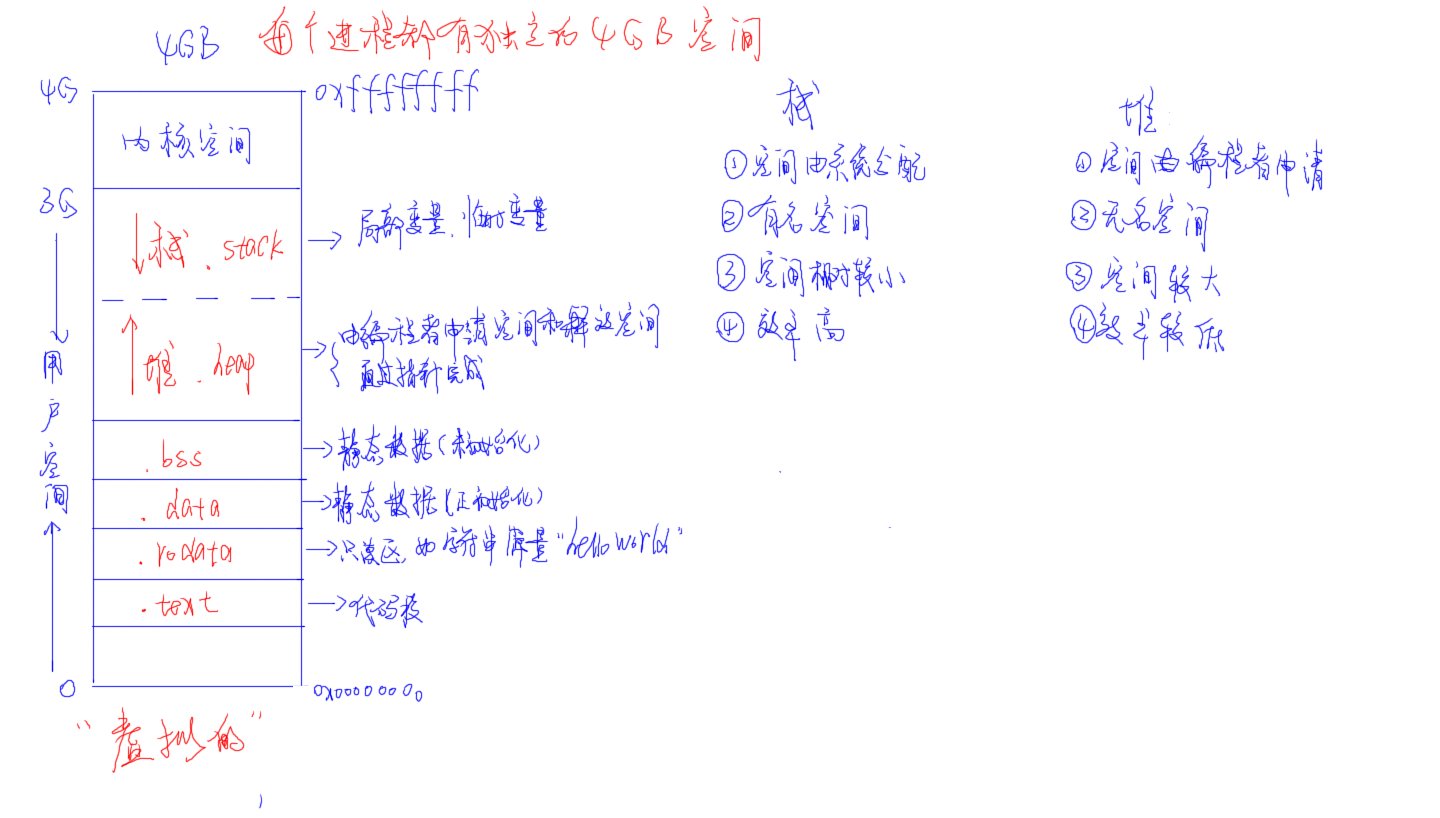 4GB 每个进程都有独立的4GB空间
4G
0xffffffff
内核空间
3G
↓栈 . stack
→局部变量、临时变量
↑堆 . heap
→由编程者申请空间和释放空间
通过指针完成
用户空间
. bss
→静态数据(未初始化)
. data
→静态数据(正初始化)
. rodata
→只读区, 如字符串常量"hello world"
. text
→代码段
0
0x00000000
"虚拟的"
栈
①空间由系统分配
②有名空间
③空间相对较小
④效率高
堆
①空间由编程者申请
②无名空间
③空间较大
④效率较低